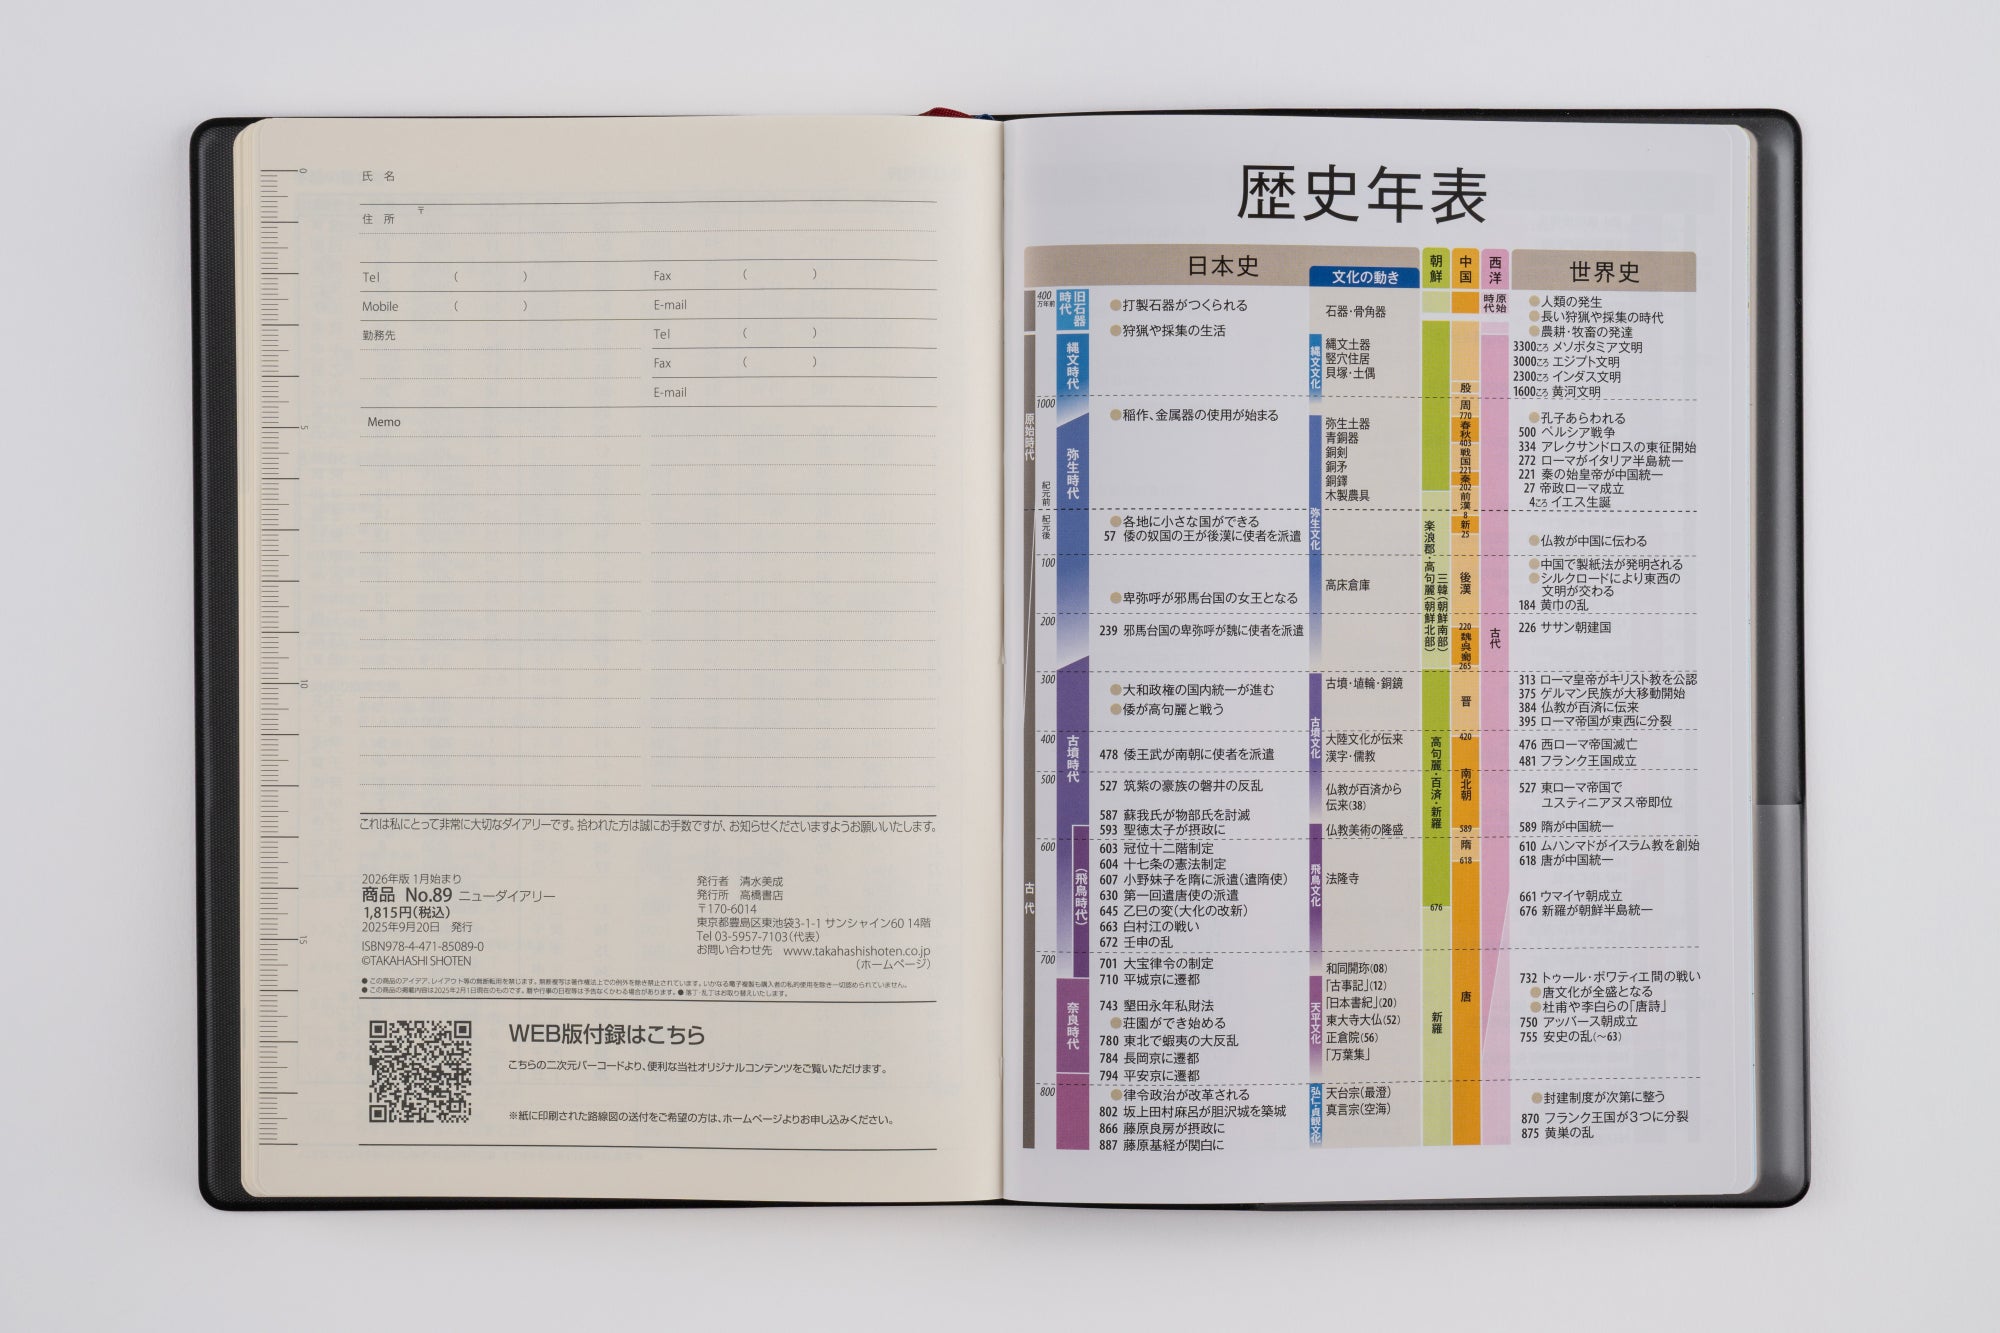 氏 名
住 所 〒
Tel ( ) Fax ( )
Mobile ( ) E-mail
勤務先 Tel ( )
Fax ( )
E-mail
Memo
0
5
10
15
これは私にとって非常に大切なダイアリーです。拾われた方は誠にお手数ですが、お知らせくださいますようお願いいたします。
2026年版 1月始まり
商品 No.89 ニューダイアリー
1,815円(税込)
2025年9月20日 発行
ISBN978-4-471-85089-0
©TAKAHASHI SHOTEN
発行者 清水美成
発行所 高橋書店
〒170-6014
東京都豊島区東池袋3-1-1 サンシャイン60 14階
Tel 03-5957-7103(代表)
お問い合わせ先 www.takahashishoten.co.jp
(ホームページ)
●この商品のアイデア、レイアウト等の無断転用を禁じます。無断複写は著作権法上での例外を除き禁止されています。いかなる電子複製も購入者の私的使用を除き一切認められていません。
●この商品の掲載内容は2025年2月1日現在のものです。暦や行事の日程等は予告なくかわる場合があります。●落丁・乱丁はお取り替えいたします。
WEB版付録はこちら
こちらの二次元バーコードより、便利な当社オリジナルコンテンツをご覧いただけます。
※紙に印刷された路線図の送付をご希望の方は、ホームページよりお申し込みください。
歴史年表
日本史
文化の動き
朝鮮
中国
西洋
世界史
400万年前
1000
紀元前
紀元後
100
200
300
400
500
600
700
800
原始時代
古代
旧石器時代
縄文時代
弥生時代
古墳時代
(飛鳥時代)
奈良時代
●打製石器がつくられる
●狩猟や採集の生活
●稲作、金属器の使用が始まる
●各地に小さな国ができる
57 倭の奴国の王が後漢に使者を派遣
●卑弥呼が邪馬台国の女王となる
239 邪馬台国の卑弥呼が魏に使者を派遣
●大和政権の国内統一が進む
●倭が高句麗と戦う
478 倭王武が南朝に使者を派遣
527 筑紫の豪族の磐井の反乱
587 蘇我氏が物部氏を討滅
593 聖徳太子が摂政に
603 冠位十二階制定
604 十七条の憲法制定
607 小野妹子を隋に派遣(遣隋使)
630 第一回遣唐使の派遣
645 乙巳の変(大化の改新)
663 白村江の戦い
672 壬申の乱
701 大宝律令の制定
710 平城京に遷都
743 墾田永年私財法
●荘園ができ始める
780 東北で蝦夷の大反乱
784 長岡京に遷都
794 平安京に遷都
●律令政治が改革される
802 坂上田村麻呂が胆沢城を築城
866 藤原良房が摂政に
887 藤原基経が関白に
縄文文化
弥生文化
古墳文化
飛鳥文化
天平文化
弘仁・貞観文化
石器・骨角器
縄文土器
竪穴住居
貝塚・土偶
弥生土器
青銅器
銅剣
銅矛
銅鐸
木製農具
高床倉庫
古墳・埴輪・銅鏡
大陸文化が伝来
漢字・儒教
仏教が百済から
伝来(38)
仏教美術の隆盛
法隆寺
和同開珎(08)
「古事記」(12)
「日本書紀」(20)
東大寺大仏(52)
正倉院(56)
「万葉集」
天台宗(最澄)
真言宗(空海)
楽浪郡・高句麗(朝鮮北部)
三韓(朝鮮南部)
高句麗・百済・新羅
676
新羅
殷
周
770
春秋
403
戦国
221
秦
202
前漢
8
新
25
後漢
220
魏・呉・蜀
265
晋
420
南北朝
589
隋
618
唐
原始時代
古代
●人類の発生
●長い狩猟や採集の時代
●農耕・牧畜の発達
3300ころ メソポタミア文明
3000ころ エジプト文明
2300ころ インダス文明
1600ころ 黄河文明
●孔子あらわれる
500 ペルシア戦争
334 アレクサンドロスの東征開始
272 ローマがイタリア半島統一
221 秦の始皇帝が中国統一
27 帝政ローマ成立
4ころ イエス生誕
●仏教が中国に伝わる
●中国で製紙法が発明される
●シルクロードにより東西の
文明が交わる
184 黄巾の乱
226 ササン朝建国
313 ローマ皇帝がキリスト教を公認
375 ゲルマン民族が大移動開始
384 仏教が百済に伝来
395 ローマ帝国が東西に分裂
476 西ローマ帝国滅亡
481 フランク王国成立
527 東ローマ帝国で
ユスティニアヌス帝即位
589 隋が中国統一
610 ムハンマドがイスラム教を創始
618 唐が中国統一
661 ウマイヤ朝成立
676 新羅が朝鮮半島統一
732 トゥール・ポワティエ間の戦い
●唐文化が全盛となる
●杜甫や李白らの「唐詩」
750 アッバース朝成立
755 安史の乱(〜63)
●封建制度が次第に整う
870 フランク王国が3つに分裂
875 黄巣の乱